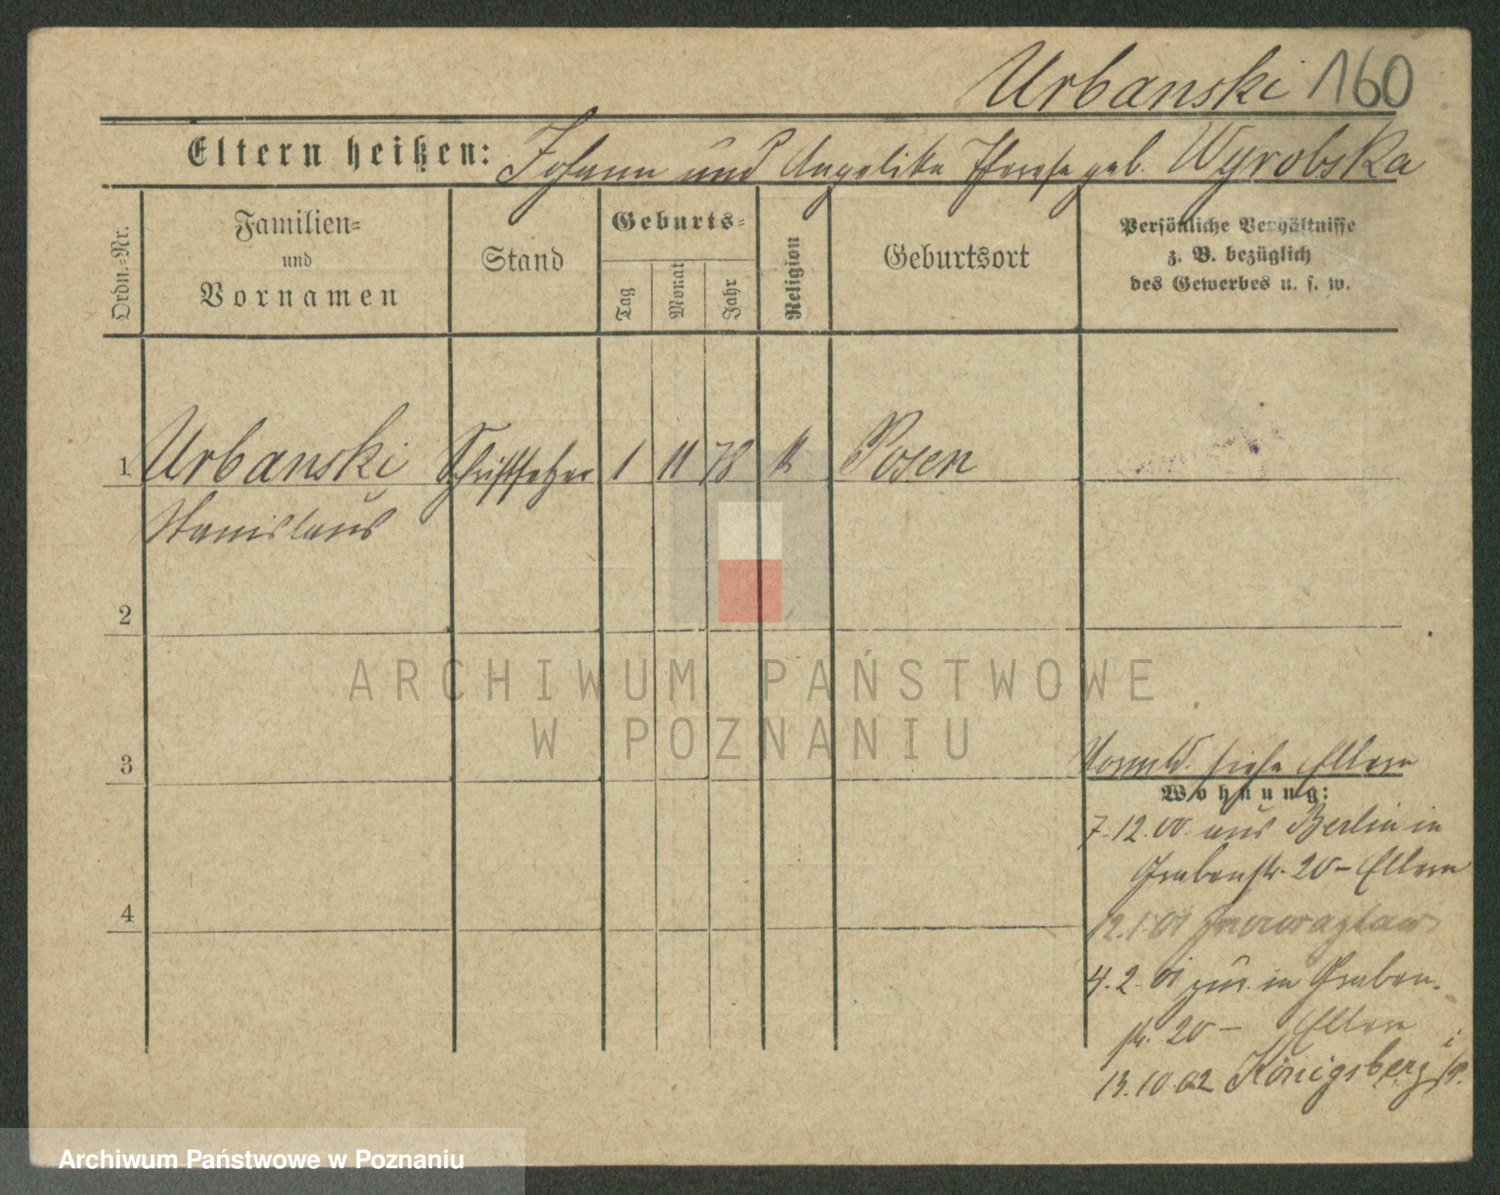 Urbanski 160
Eltern heißen: Johann und Angelika Therese geb. Wyrobska
Ordn.-Nr.
Familien-
und
Vornamen
Stand
Geburts-
Tag
Monat
Jahr
Religion
Geburtsort
Persönliche Verhältnisse
z. B. bezüglich
des Gewerbes u. s. w.
1 Urbanski Schriftsetzer 1 11 78 k Posen
Stanislaus
2
ARCHIWUM PAŃSTWOWE
W POZNANIU
3
siehe Eltern
Wohnung:
7.12.00. aus Berlin in
Grabenstr. 20 - Eltern
12.1.01 Inowrazlaw
4.2.01 zur. in Graben-
str. 20 - Eltern
4
13.10.02 Königsberg i/P.
Archiwum Państwowe w Poznaniu